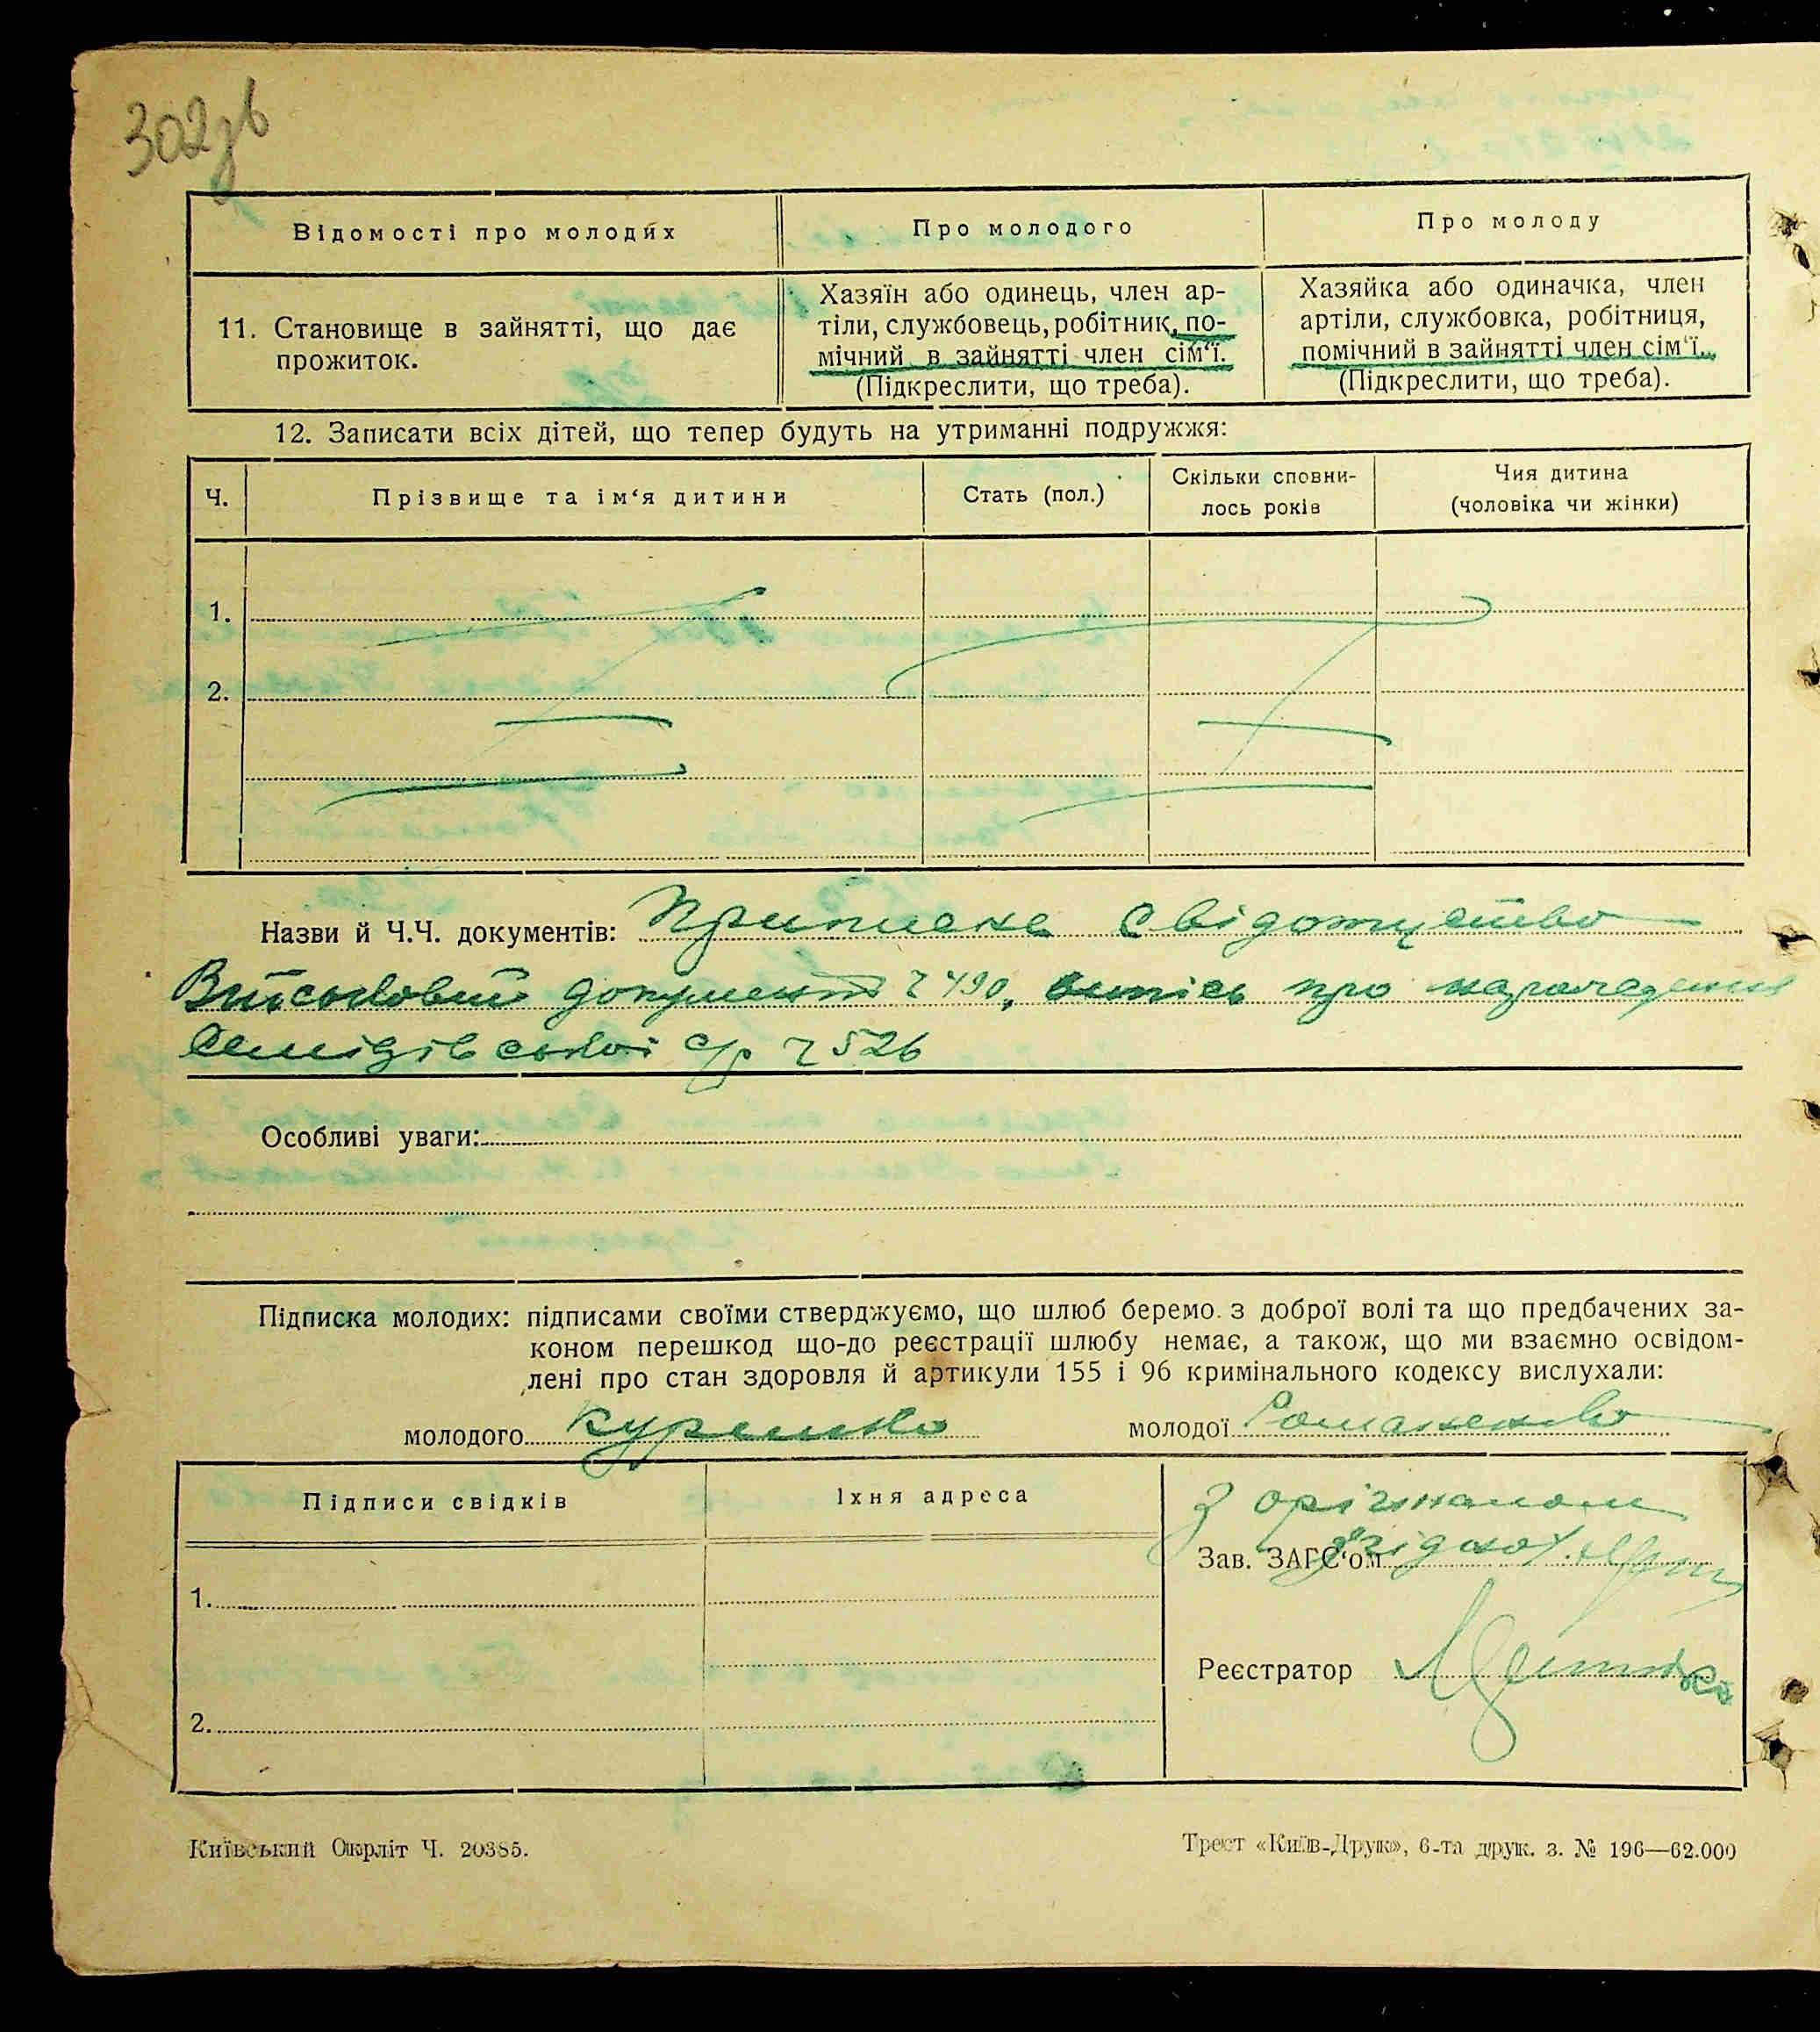 302зв
Відомості про молодих
Про молодого
Про молоду
11. Становище в зайнятті, що дає
прожиток.
Хазяїн або одинець, член ар-
тіли, службовець, робітник, по-
мічний в зайнятті член сім‘ї.
(Підкреслити, що треба).
Хазяйка або одиначка, член
артіли, службовка, робітниця,
помічний в зайнятті член сім‘ї.
(Підкреслити, що треба).
12. Записати всіх дітей, що тепер будуть на утриманні подружжя:
Ч.
Прізвище та ім‘я дитини
Стать (пол.)
Скільки сповни-
лось років
Чия дитина
(чоловіка чи жінки)
1.
2.
Назви й Ч.Ч. документів: Приписне свідотцство
Військовий документ 490, витісь про народження
с/р 526
Особливі уваги:
Підписка молодих: підписами своїми стверджуємо, що шлюб беремо з доброї волі та що предбачених за-
коном перешкод що-до реєстрації шлюбу немає, а також, що ми взаємно освідом-
лені про стан здоровля й артикули 155 і 96 кримінального кодексу вислухали:
молодого Куренко молодої Романенко
Підписи свідків
Їхня адреса
З орігіналом
згідно
Зав. ЗАГС‘ом
1.
Реєстратор
2.
Київський Окрліт Ч. 20385.
Трест «Київ-Друк», 6-та друк. з. № 196—62.000